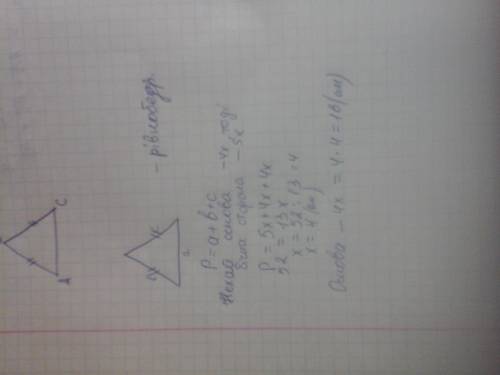 A C
- рівнобедр.
P = a + b + c
Нехай основа - 4x тоді
бічна сторона - 5x
P = 5x + 4x + 4x
52 = 13x
x = 52 : 13 = 4
x = 4 (см)
Основа - 4x = 4 · 4 = 16 (см)